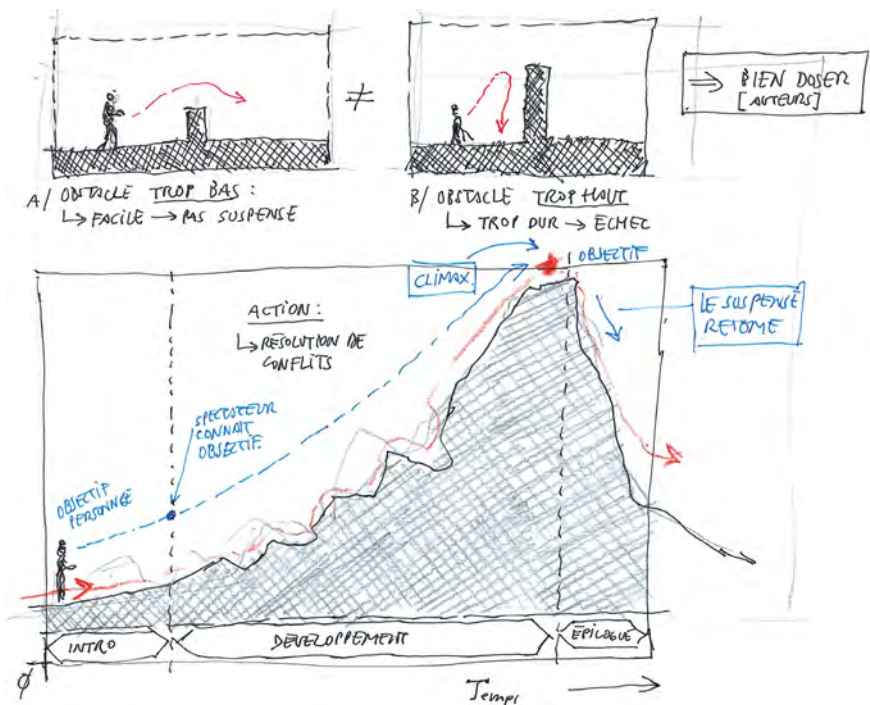 A/ OBSTACLE TROP BAS :
↳ FACILE → PAS SUSPENSE
≠
B/ OBSTACLE TROP HAUT
↳ TROP DUR → ECHEC
⇒ BIEN DOSER
[AUTEURS]
CLIMAX
OBJECTIF
LE SUSPENSE
RETOMBE
ACTION :
↳ RESOLUTION DE
CONFLITS
SPECTATEUR
CONNAIT
OBJECTIF
OBJECTIF
PERSONNAGE
INTRO
DEVELOPPEMENT
ÉPILOGUE
Ø
Temps